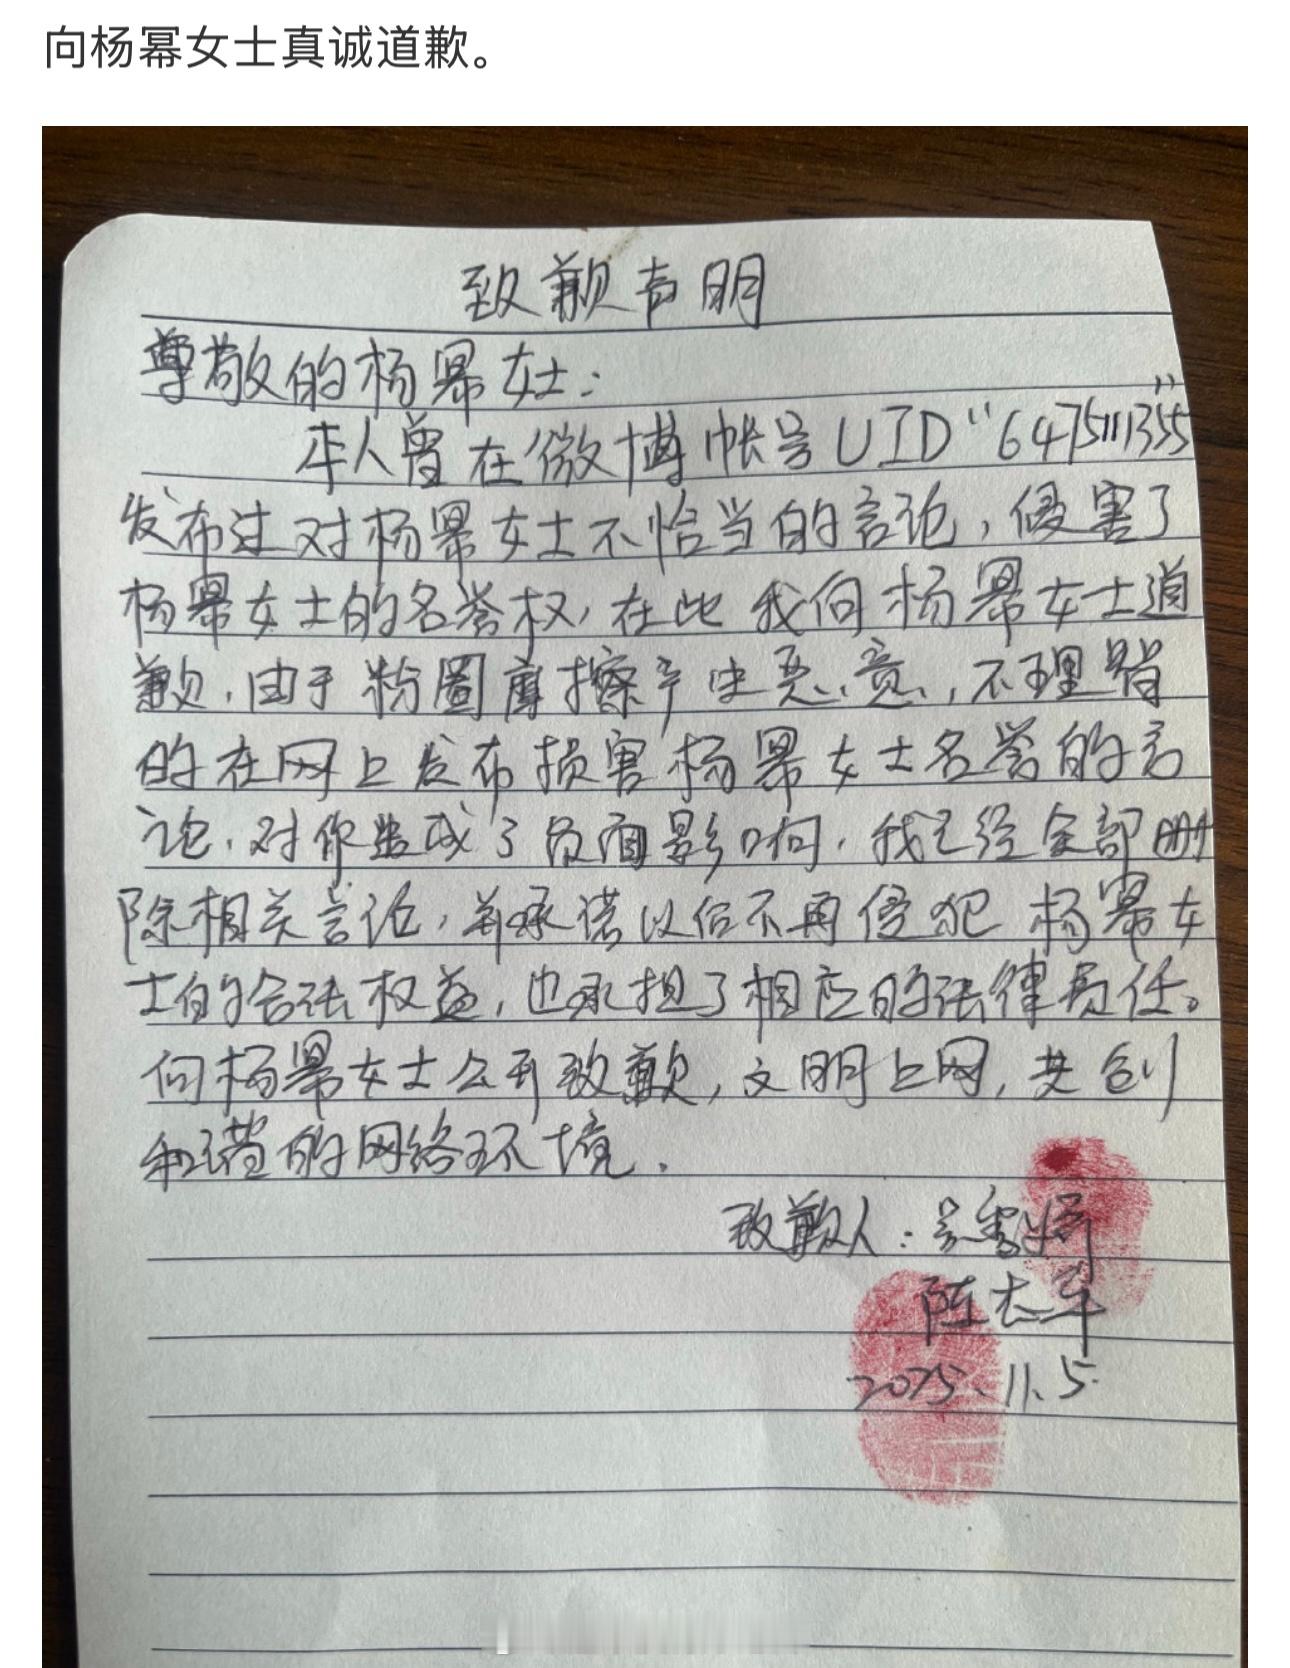 向杨幂女士真诚道歉。
致歉声明
尊敬的杨幂女士：
本人曾在微博帐号UID“6475111355”
发布过对杨幂女士不恰当的言论，侵害了
杨幂女士的名誉权，在此我向杨幂女士道
歉，由于粉圈摩擦产生恶意，不理智
的在网上发布损害杨幂女士名誉的言
论，对你造成了负面影响，我已经全部删
除相关言论，并承诺以后不再侵犯杨幂女
士的合法权益，也承担了相应的法律责任。
向杨幂女士公开致歉，文明上网，共创
和谐的网络环境．
致歉人：吴雪
陈志军
2025.11.5.